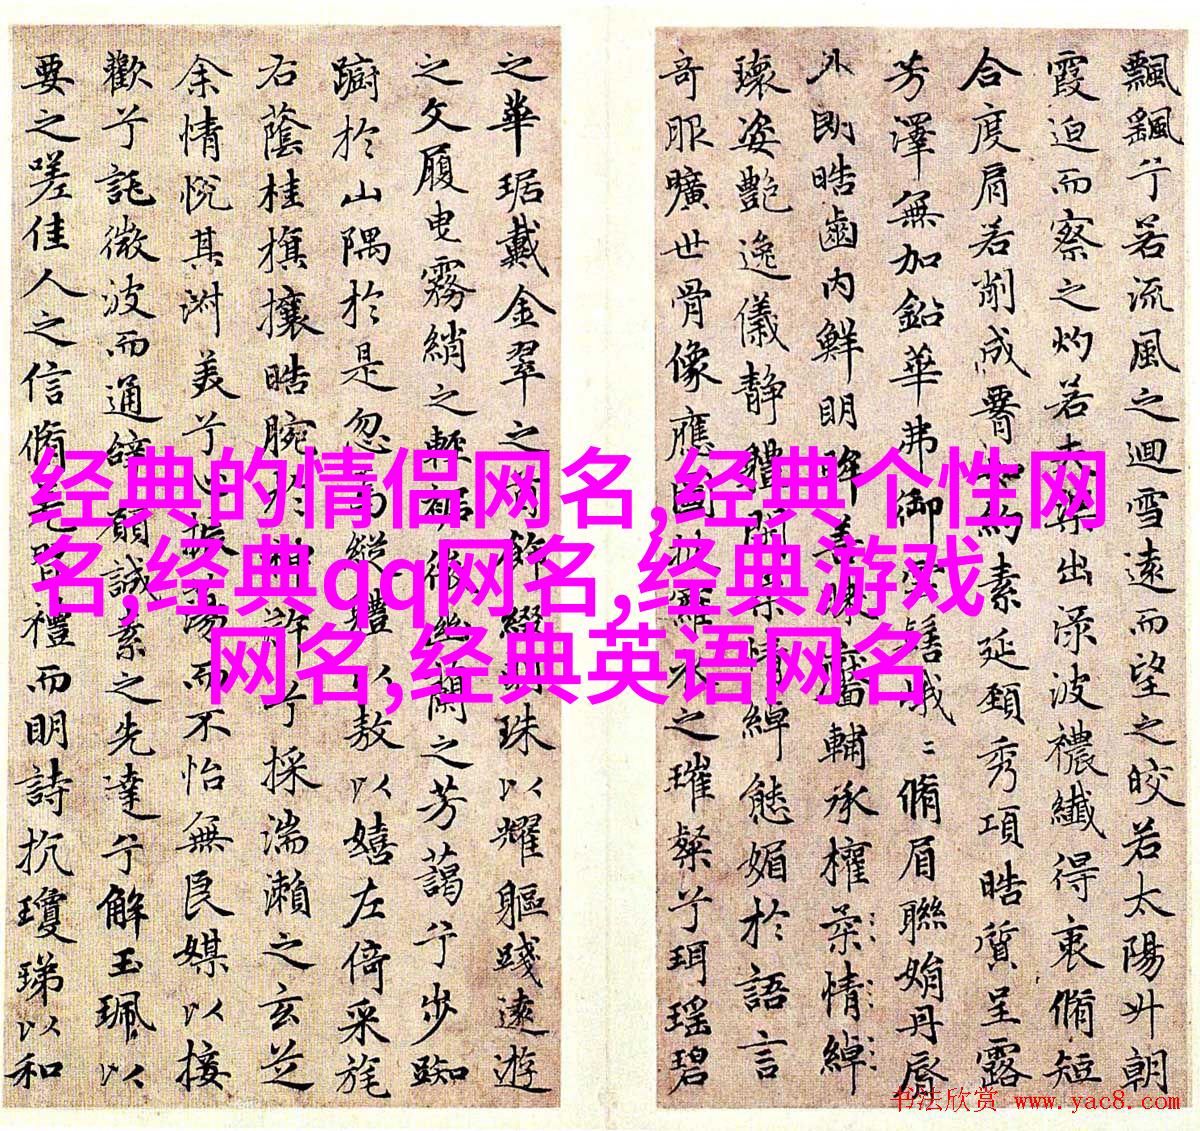 飄飖兮若流風之迴雪遠而望之皎若太陽升朝
霞迫而察之灼若芙蕖出淥波穠纖得衷脩短
合度肩若削成腰如約素延頸秀項皓質呈露
芳澤無加鉛華弗御雲髻峩脩眉聯娟丹唇
外朗皓齒內鮮明眸善睞靨輔承權柔情綽
瓌姿艷逸儀静體閑柔情綽態媚於語言
奇服曠世骨像應圖披羅衣之璀粲兮珥瑶碧
之華琚戴金翠之首飾綴明珠以耀軀踐遠遊
之文履曳霧綃之輕裾微幽蘭之芳藹兮步踟
躕於山隅於是忽焉縱體以敖以嬉左倚采旄
右蔭桂旗攘皓腕於神滸兮採湍瀨之玄芝
余情悅其淑美兮心振蕩而不怡無良媒以接
歡兮託微波而通辭願誠素之先達兮解玉珮以
要之嗟佳人之信脩羌習禮而明詩抗瓊珶以和
经典的情侣网名,经典个性网
名,经典qq网名,经典游戏
网名,经典英语网名
书法欣赏 www.yac8.com